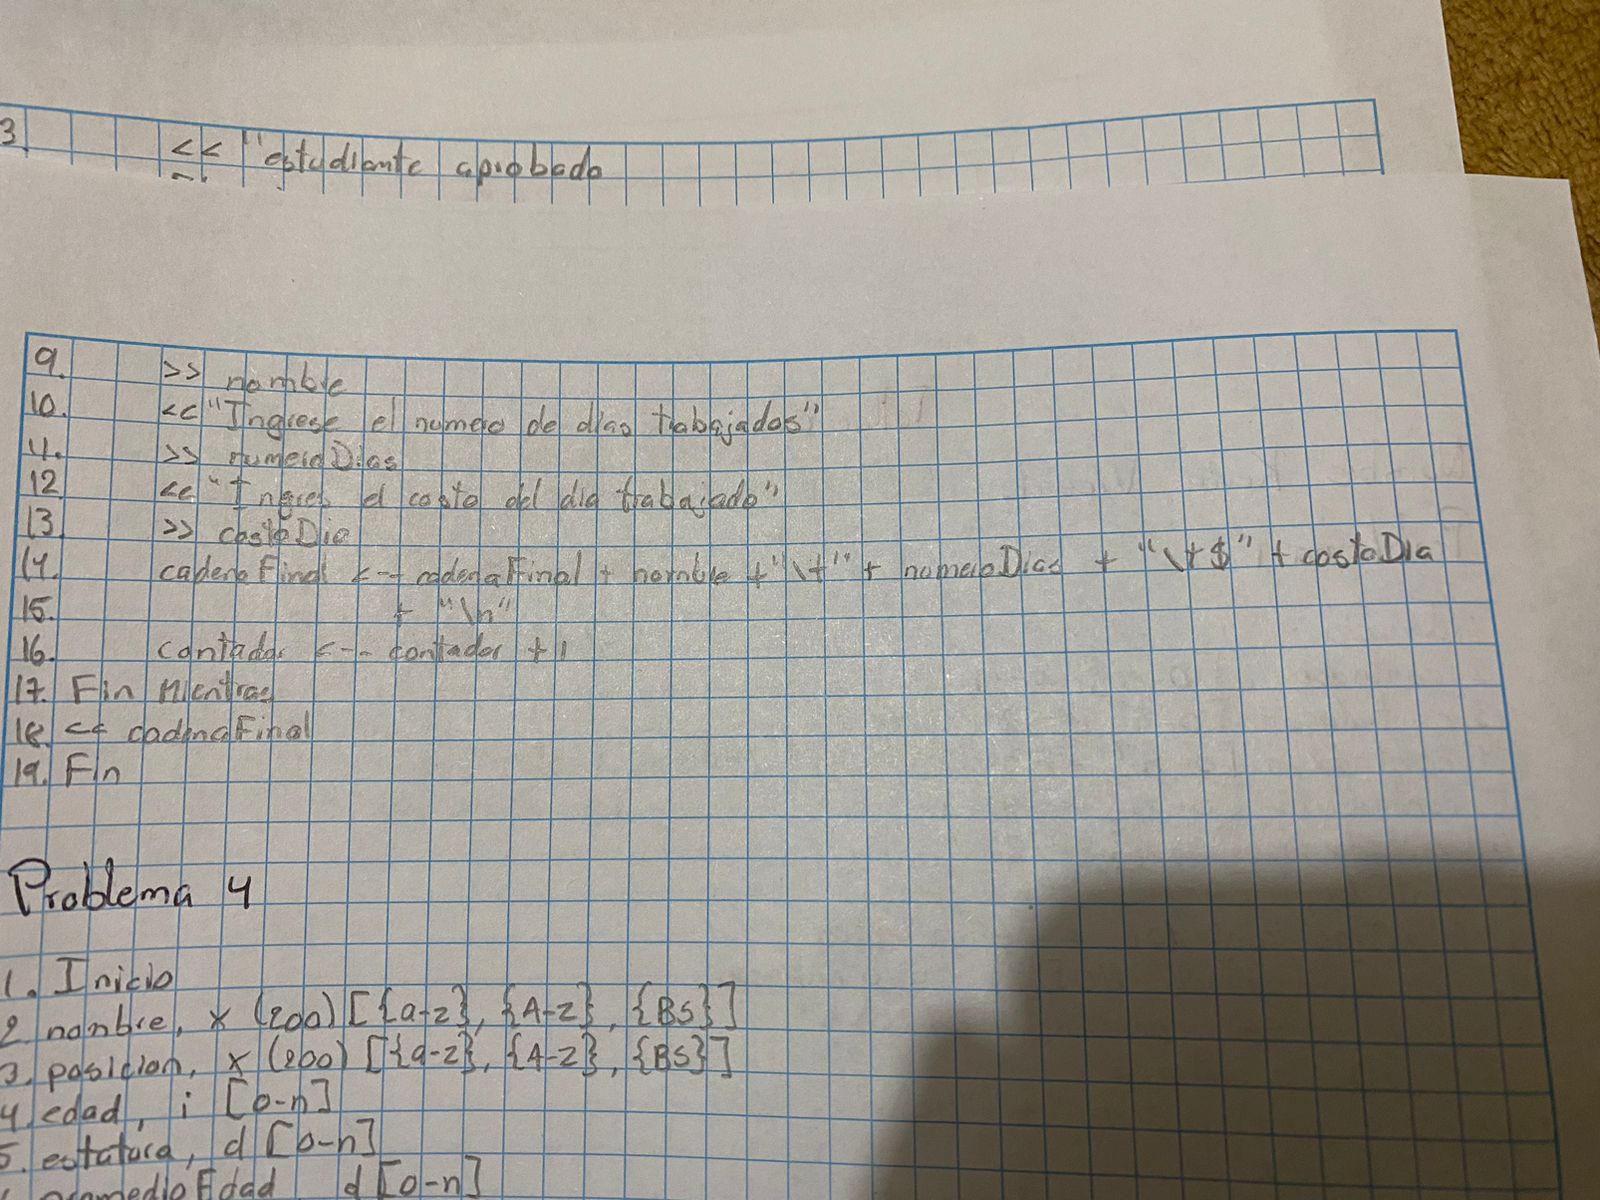 3. << "estudiante aprobado
9. >> nombre
10. << "Ingrese el numero de dias trabajados"
11. >> numeroDias
12 << "Ingres el costo del dia trabajado"
13. >> costoDia
14. cadenaFinal <-- cadenaFinal + nombre + "\t" + numeroDias + "\t $" + costoDia
15. + "\n"
16. contador <-- contador + 1
17. Fin Mientras
18. << cadenaFinal
19. Fin
Problema 4
1. Inicio
2 nombre, x (200) [{a-z}, {A-Z}, {BS}]
3. posicion, x (200) [{a-z}, {A-Z}, {BS}]
4. edad, i [0-n]
5. estatura, d [0-n]
promedioEdad d [0-n]